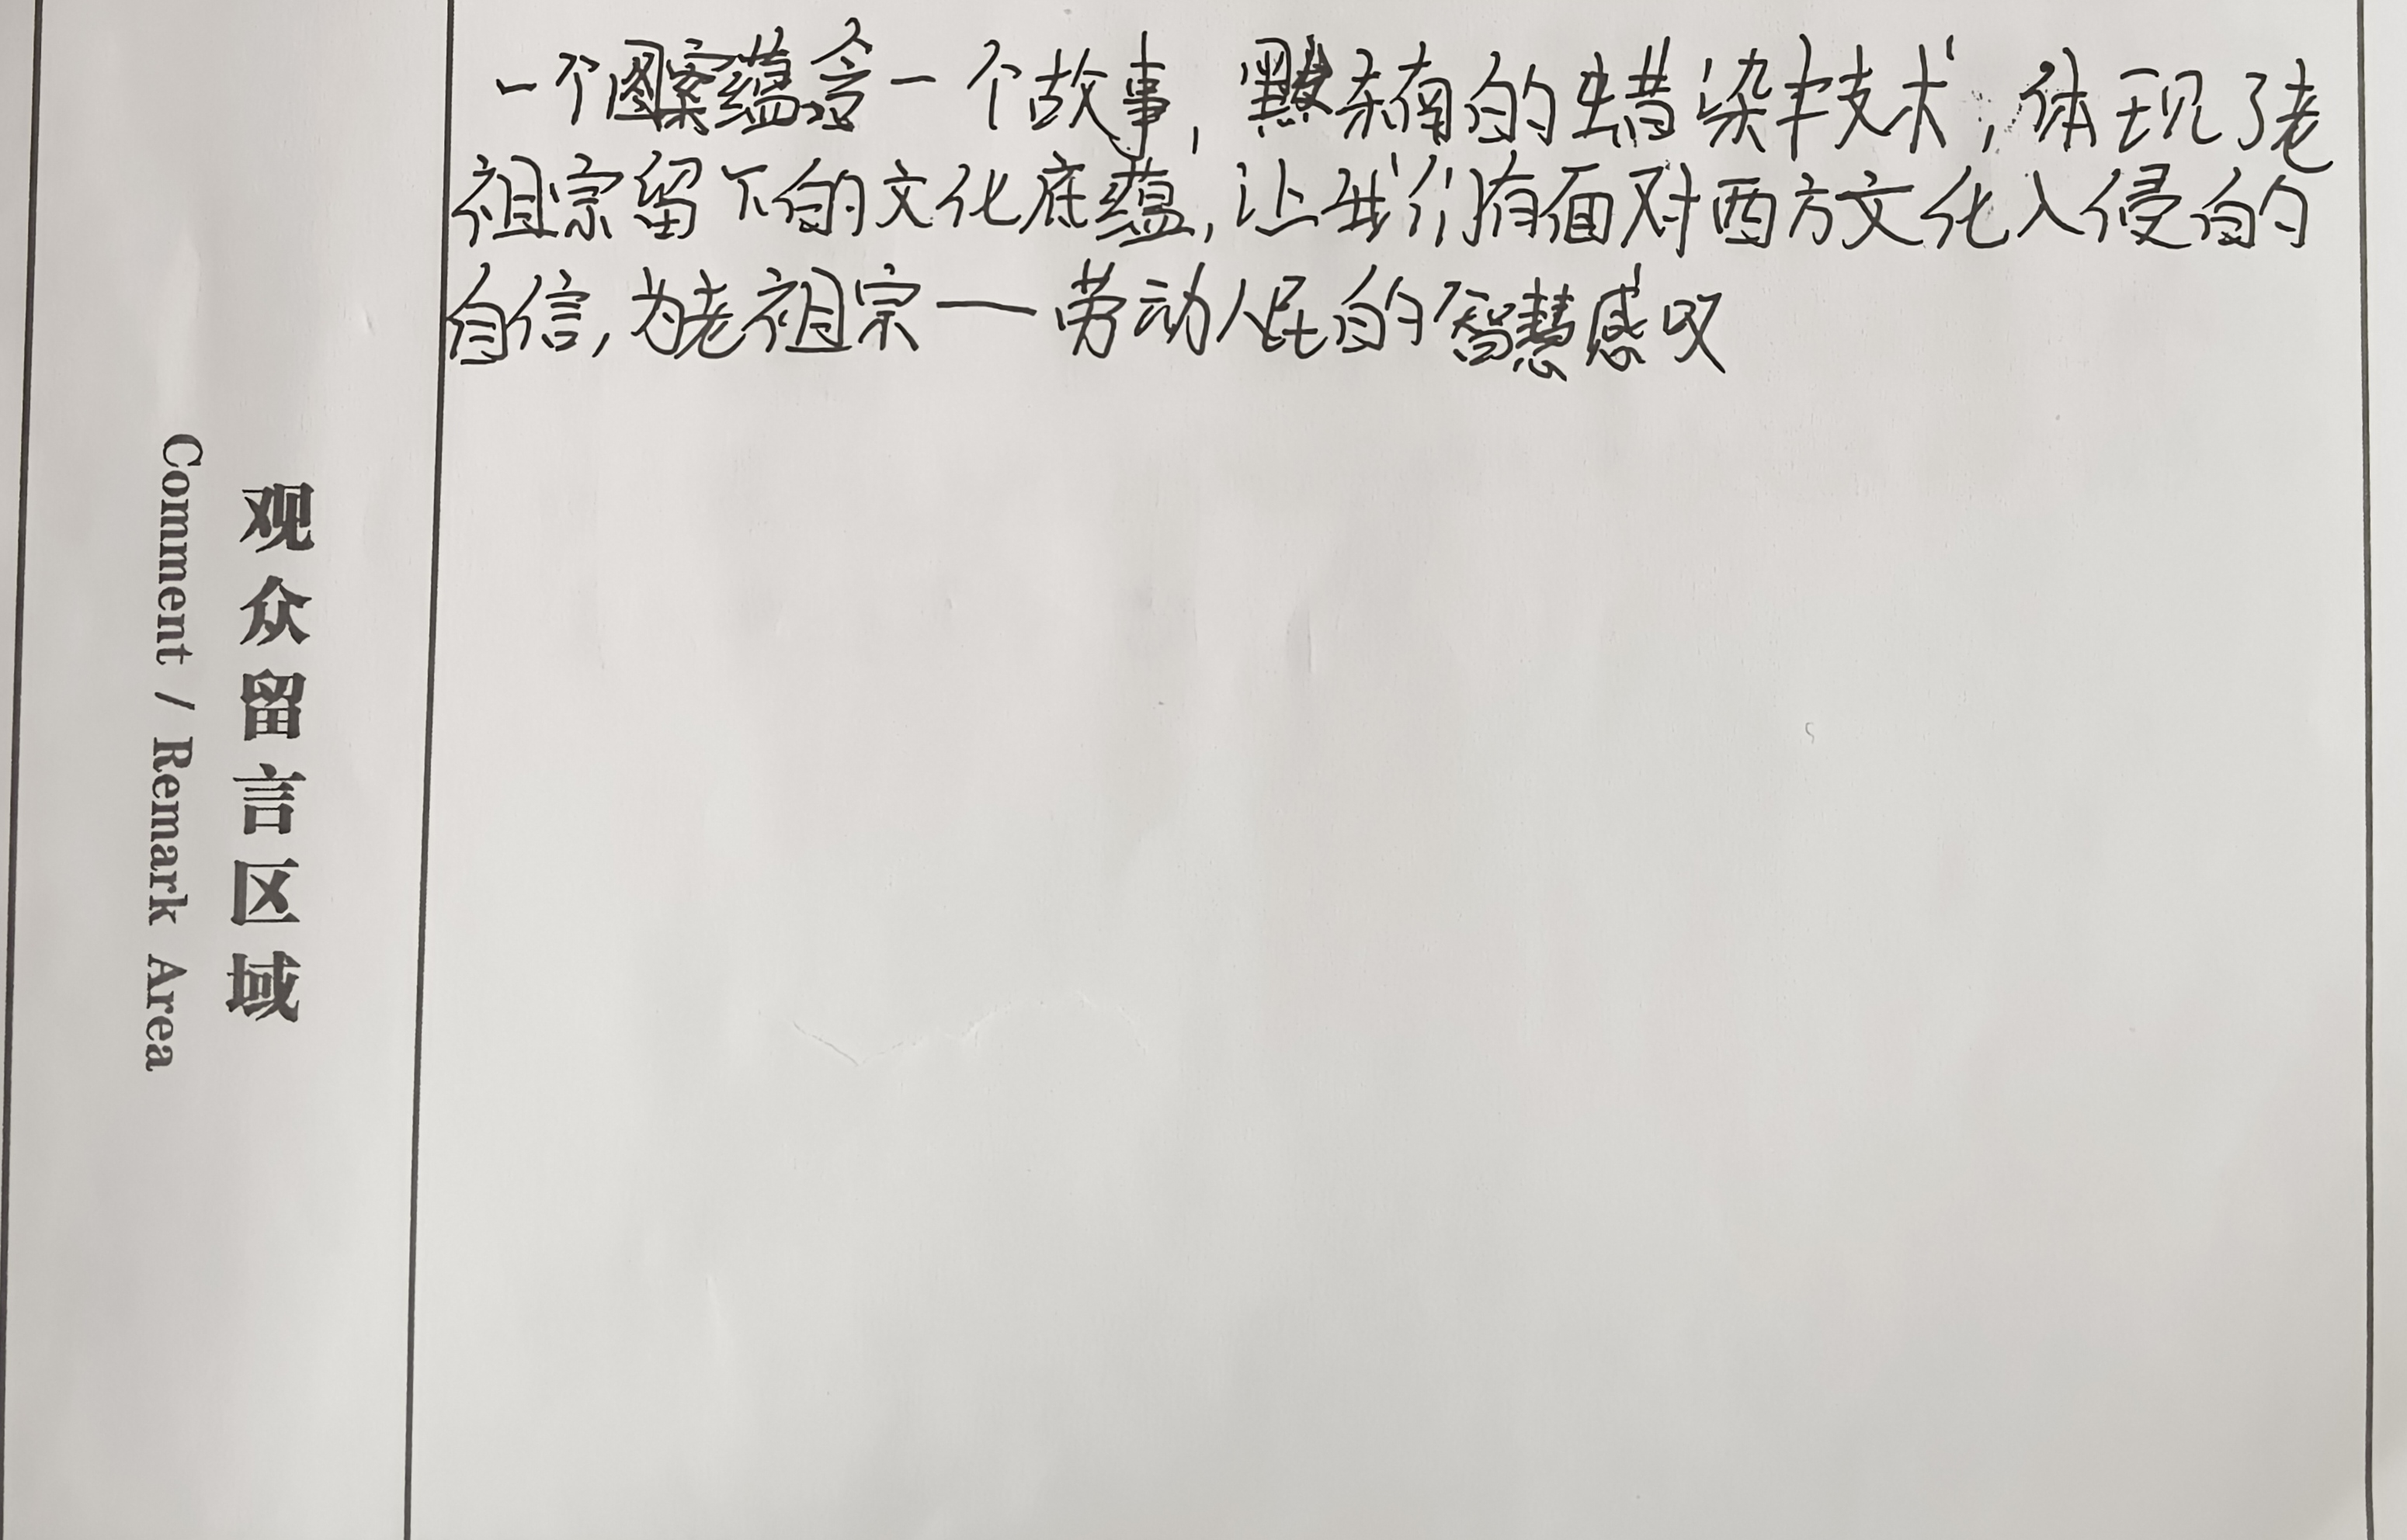 一个图案蕴含一个故事，黔东南的蜡染技术，体现了老
祖宗留下的文化底蕴，让我们有面对西方文化入侵的
自信，为老祖宗——劳动人民的智慧感叹
观众留言区域
Comment / Remark Area